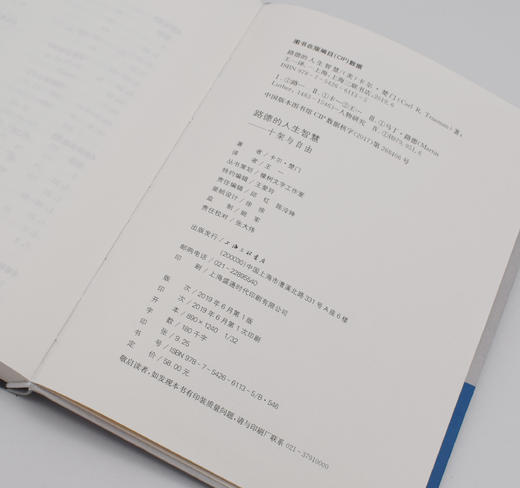 图书在版编目(CIP)数据
路德的人生智慧/(美)卡尔·楚门(Carl R. Trueman)著;
王一译.—上海:上海三联书店,2019.6
ISBN 978-7-5426-6113-5
Ⅰ.①路… Ⅱ.①卡…②王… Ⅲ.①马丁·路德(Martin
Luther, 1483-1546)—人物研究 Ⅳ.①B979.951.6
中国版本图书馆CIP数据核字(2017)第268466号
路德的人生智慧
——十架与自由
著 者/卡尔·楚门
译 者/王 一
丛书策划/橡树文字工作室
特约编辑/王爱玲
责任编辑/邱 红 陈泠珅
装帧设计/徐 徐
监 制/姚 军
责任校对/张大伟
出版发行/上海三联书店
(200030)中国上海市漕溪北路331号A座6楼
邮购电话/021-22895540
印 刷/上海盛通时代印刷有限公司
版 次/2019年6月第1版
印 次/2019年6月第1次印刷
开 本/890×1240 1/32
字 数/180千字
印 张/9.25
书 号/ISBN 978-7-5426-6113-5/B·546
定 价/58.00元
敬启读者,如发现本书有印装质量问题,请与印刷厂联系021-37910000